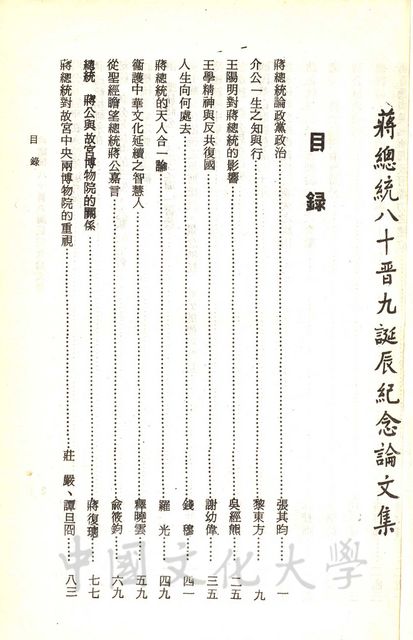 蔣總統八十晋九誕辰紀念論文集
目錄
蔣總統論政黨政治 張其昀 一
介公一生之知與行 黎東方 九
王陽明對蔣總統的影響 吳經熊 二五
王學精神與反共復國 謝幼偉 三五
人生向何處去 錢穆 四一
蔣總統的天人合一論 羅光 四九
衞護中華文化延續之智慧人 釋曉雲 五九
從聖經瞻望總統蔣公嘉言 俞筱鈞 六九
總統 蔣公與故宮博物院的關係 蔣復璁 七七
蔣總統對故宮中央兩博物院的重視 莊嚴、譚旦冏 八三
目錄
中國文化大學